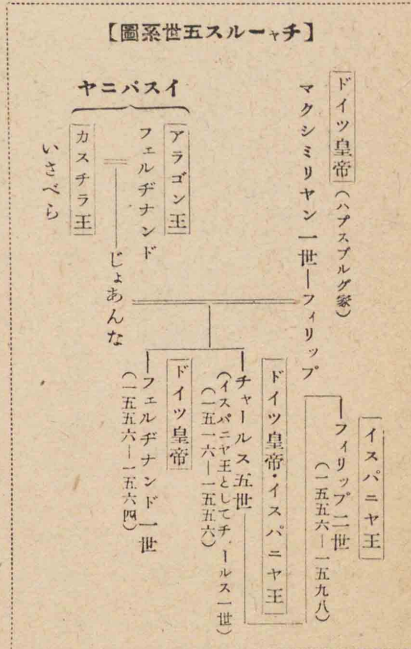 【チャールス五世系圖】
ドイツ皇帝(ハプスブルグ家)
マクシミリヤン一世―フィリップ
イスパニヤ
アラゴン王
フェルヂナンド
カスチラ王
いさべら
じょあんな
イスパニヤ王
フィリップ二世
(一五五六―一五九八)
ドイツ皇帝・イスパニヤ王
チャールス五世
(イスパニヤ王としてチャールス一世)
(一五一六―一五五六)
ドイツ皇帝
フェルヂナンド一世
(一五五六―一五六四)